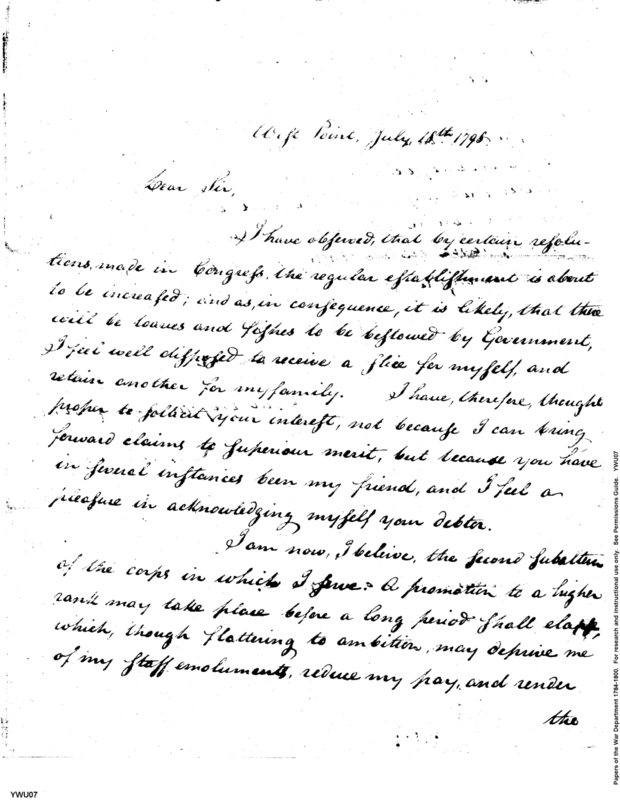 West Point, July, 18th 1798.
Dear Sir,
I have observed, that by certain resolu-
tions, made in Congress, the regular establishment is about
to be increased; and as, in consequence, it is likely, that there
will be loaves and fishes to be bestowed by Government,
I feel well disposed to receive a slice for myself, and
retain another for my family. I have, therefore, thought
proper to solicit your interest, not because I can bring
forward claims to superiour merit, but because you have
in several instances been my friend, and I feel a
pleasure in acknowledging myself your debtor.
I am now, I beleive, the second Subaltern
of the corps in which I serve: A promotion to a higher
rank may take place before a long period shall elapse,
which, though flattering to ambition, may deprive me
of my staff emoluments, reduce my pay, and render
the
YWU07
Papers of the War Department 1784-1800. For research and instructional use only. See Permissions Guide. YWU07